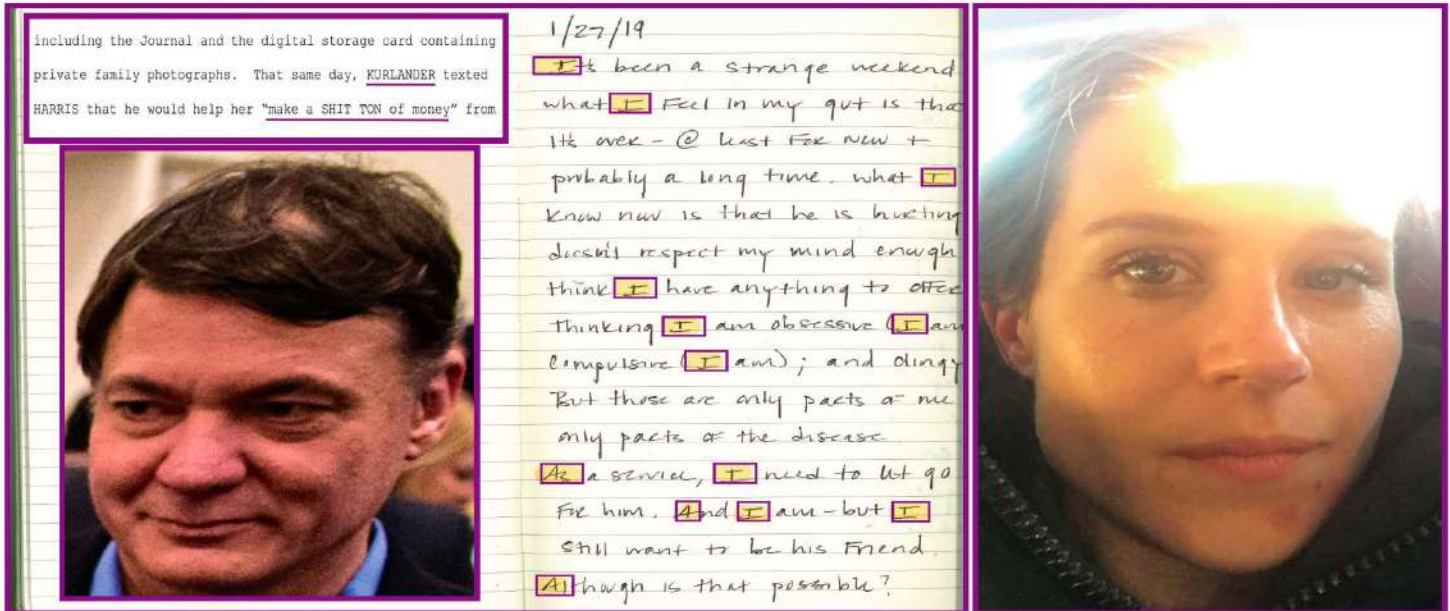 including the Journal and the digital storage card containing
private family photographs. That same day, KURLANDER texted
HARRIS that he would help her "make a SHIT TON of money" from
1/27/19
It's been a strange weekend
what I Feel in my gut is tha
It's over - @ least For Now +
probably a long time. what I
know now is that he is hurting
doesn't respect my mind enough
think I have anything to offer
thinking I am obsessive (I am
compulsive (I am); and clingy
But those are only parts of me
only parts of the disease
As a service, I need to let go
For him. And I am - but I
still want to be his Friend.
Although is that possible?